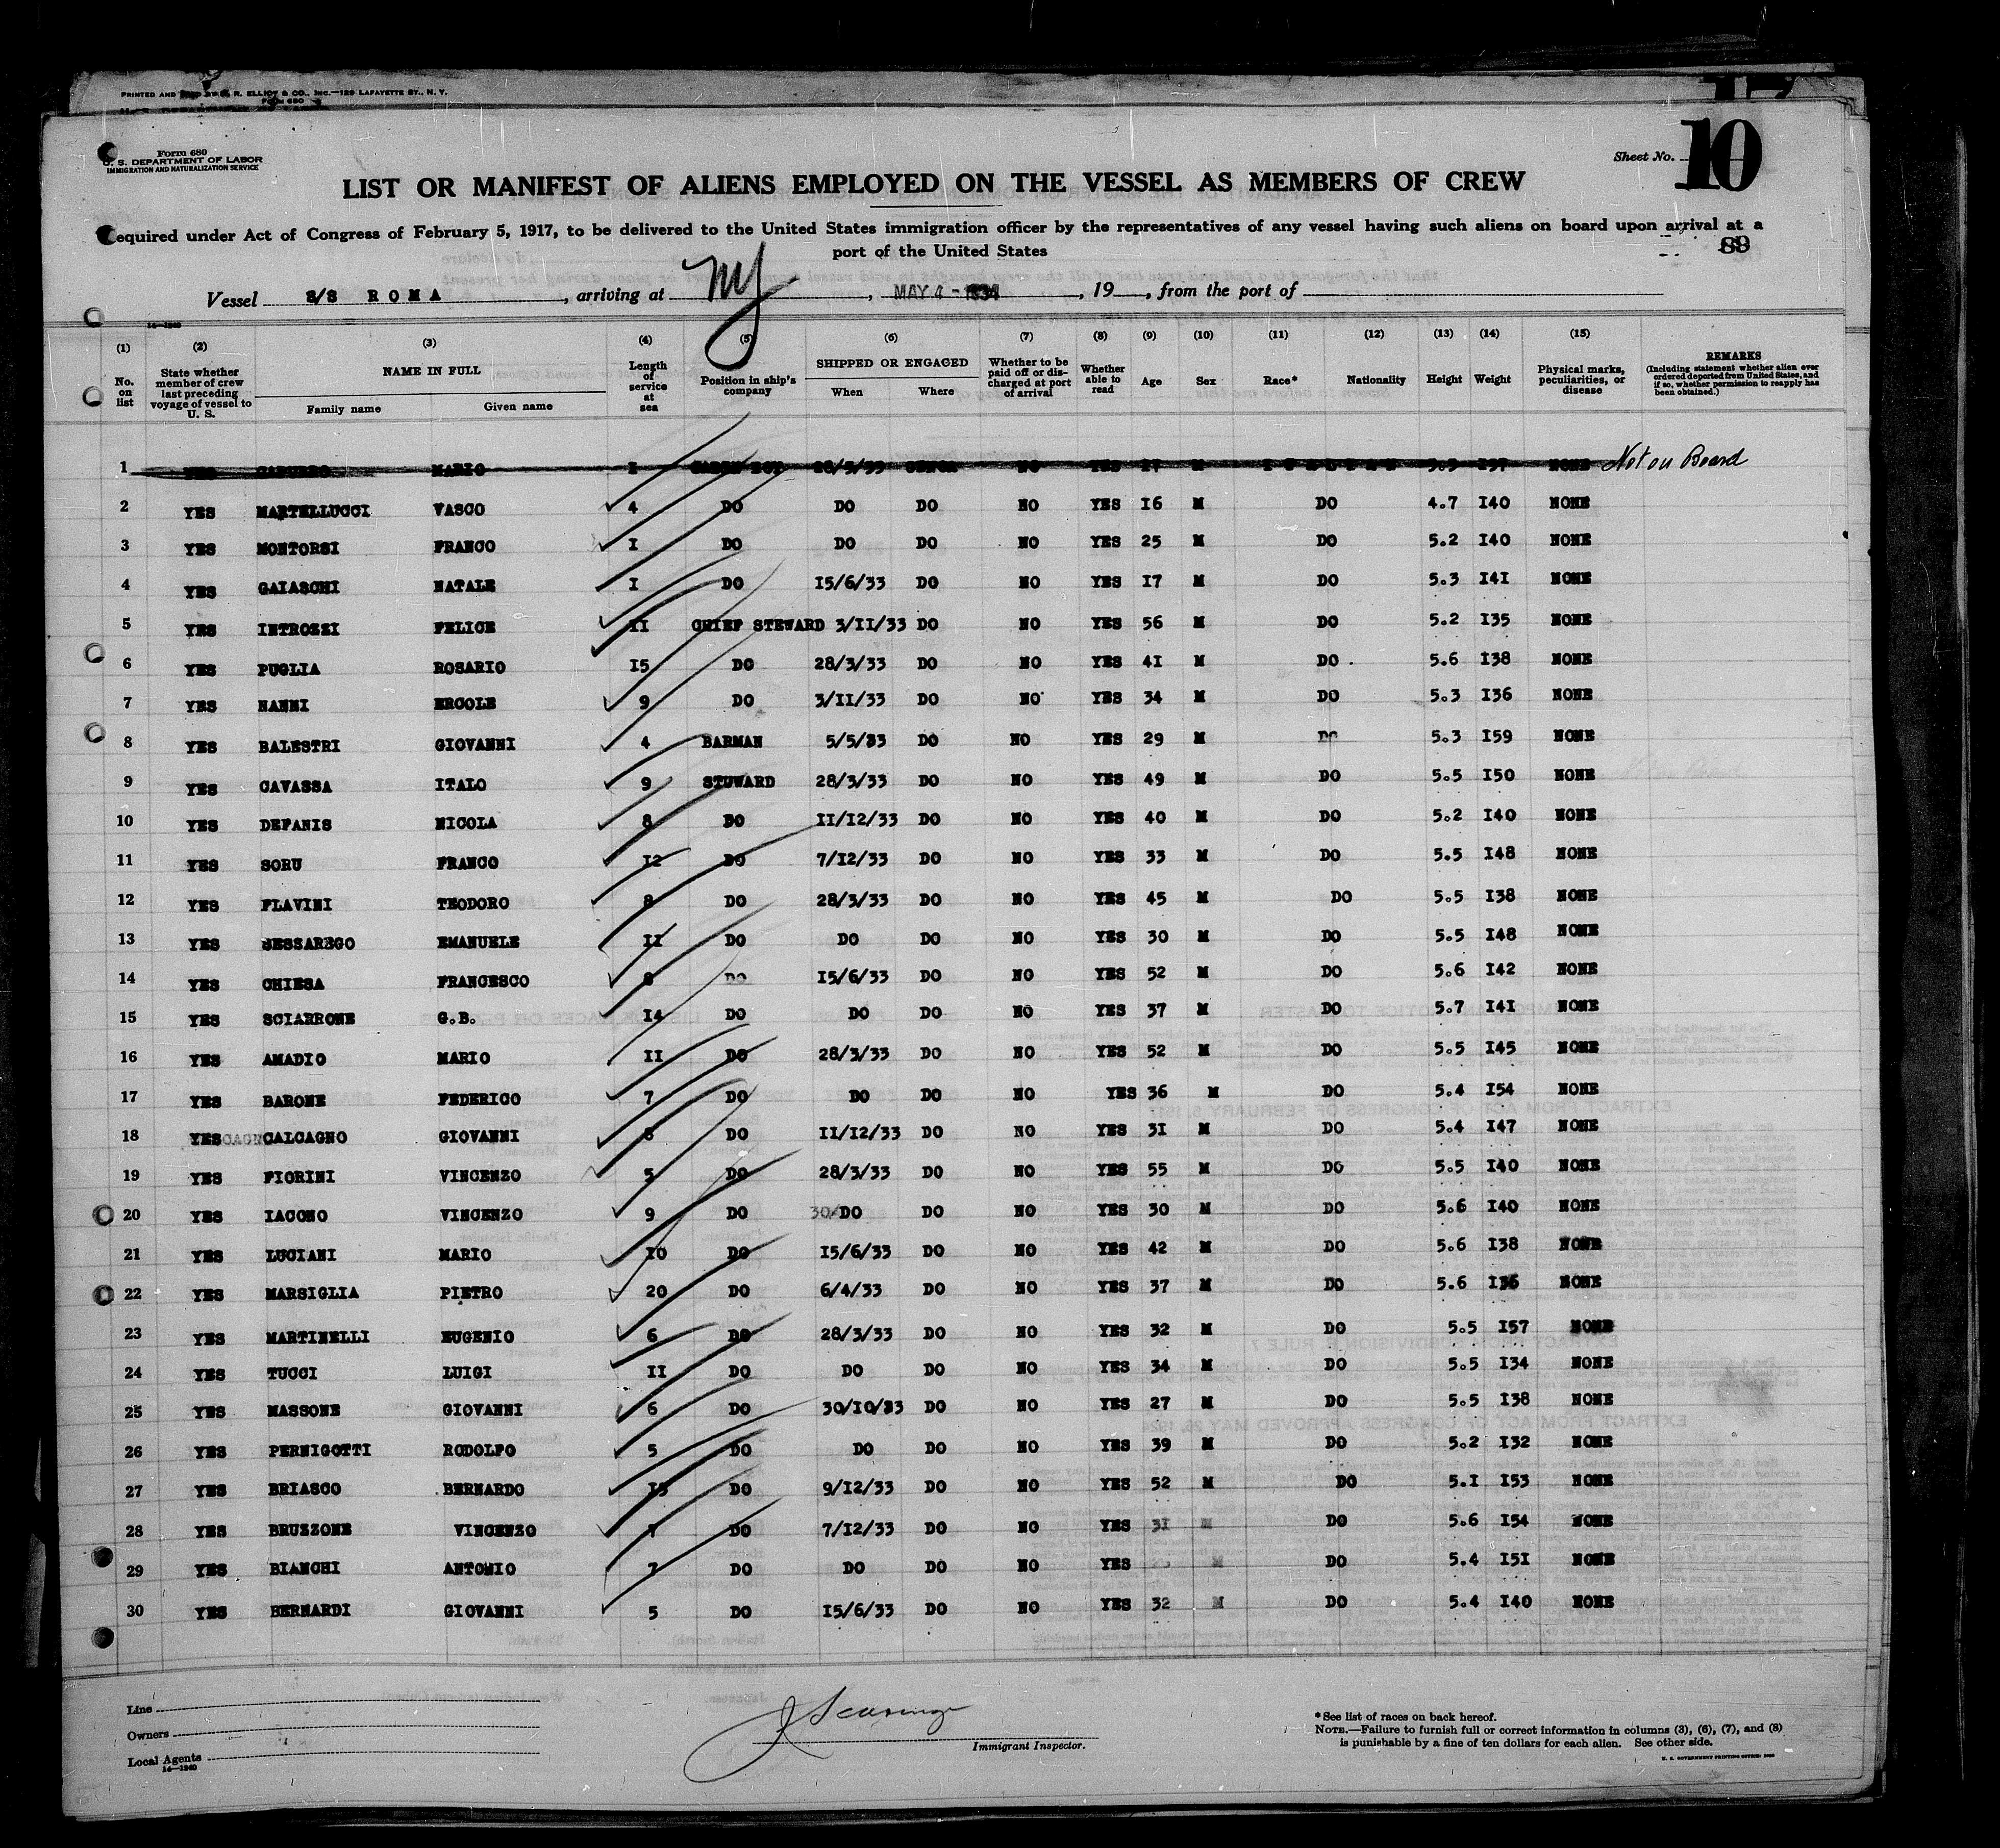 PRINTED AND R. ELLIOT & CO., INC.—129 LAFAYETTE ST., N. Y.
FORM 680
Form 680
U. S. DEPARTMENT OF LABOR
IMMIGRATION AND NATURALIZATION SERVICE
Sheet No. 10
LIST OR MANIFEST OF ALIENS EMPLOYED ON THE VESSEL AS MEMBERS OF CREW
equired under Act of Congress of February 5, 1917, to be delivered to the United States immigration officer by the representatives of any vessel having such aliens on board upon arrival at a
port of the United States
89
Vessel S/S ROMA, arriving at NY, MAY 4 - 1934, 19 , from the port of
14—1240
(1) (2) (3) (4) (5) (6) (7) (8) (9) (10) (11) (12) (13) (14) (15) REMARKS
No. on list State whether member of crew last preceding voyage of vessel to U. S. NAME IN FULL Family name Given name Length of service at sea Position in ship's company SHIPPED OR ENGAGED When Where Whether to be paid off or discharged at port of arrival Whether able to read Age Sex Race* Nationality Height Weight Physical marks, peculiarities, or disease (Including statement whether alien ever ordered deported from United States, and if so, whether permission to reapply has been obtained.)
1 MARIO I 28/3/33 NO YES 27 M NONE Not on Board
2 YES MARTELLUCCI VASCO 4 DO DO DO NO YES I6 M DO 4.7 I40 NONE
3 YES MONTORSI FRANCO I DO DO DO NO YES 25 M DO 5.2 I40 NONE
4 YES GAIASCHI NATALE I DO I5/6/33 DO NO YES I7 M DO 5.3 I4I NONE
5 YES INTROZZI FELICE II CHIEF STEWARD 3/II/33 DO NO YES 56 M DO 5.2 I35 NONE
6 YES PUGLIA ROSARIO I5 DO 28/3/33 DO NO YES 4I M DO 5.6 I38 NONE
7 YES NANNI ERCOLE 9 DO 3/II/33 DO NO YES 34 M DO 5.3 I36 NONE
8 YES BALESTRI GIOVANNI 4 BARMAN 5/5/33 DO NO YES 29 M DO 5.3 I59 NONE
9 YES CAVASSA ITALO 9 STUWARD 28/3/33 DO NO YES 49 M DO 5.5 I50 NONE
10 YES DEFANIS NICOLA 8 DO II/I2/33 DO NO YES 40 M DO 5.2 I40 NONE
11 YES SORU FRANCO I2 DO 7/I2/33 DO NO YES 33 M DO 5.5 I48 NONE
12 YES FLAVINI TEODORO 8 DO 28/3/33 DO NO YES 45 M DO 5.5 I38 NONE
13 YES BESSAREGO EMANUELE II DO DO DO NO YES 30 M DO 5.5 I48 NONE
14 YES CHIESA FRANCESCO 8 DO I5/6/33 DO NO YES 52 M DO 5.6 I42 NONE
15 YES SCIARRONE G.B. I4 DO DO DO NO YES 37 M DO 5.7 I4I NONE
16 YES AMADIO MARIO II DO 28/3/33 DO NO YES 52 M DO 5.5 I45 NONE
17 YES BARONE FEDERICO 7 DO DO DO NO YES 36 M DO 5.4 I54 NONE
18 YES CALCAGNO GIOVANNI 8 DO II/I2/33 DO NO YES 3I M DO 5.4 I47 NONE
19 YES FIORINI VINCENZO 5 DO 28/3/33 DO NO YES 55 M DO 5.5 I40 NONE
20 YES IACONO VINCENZO 9 DO DO DO NO YES 30 M DO 5.6 I40 NONE
21 YES LUCIANI MARIO I0 DO I5/6/33 DO NO YES 42 M DO 5.6 I38 NONE
22 YES MARSIGLIA PIETRO 20 DO 6/4/33 DO NO YES 37 M DO 5.6 I36 NONE
23 YES MARTINELLI EUGENIO 6 DO 28/3/33 DO NO YES 32 M DO 5.5 I57 NONE
24 YES TUCCI LUIGI II DO DO DO NO YES 34 M DO 5.5 I34 NONE
25 YES MASSONE GIOVANNI 6 DO 30/I0/33 DO NO YES 27 M DO 5.5 I38 NONE
26 YES PERNIGOTTI RODOLFO 5 DO DO DO NO YES 39 M DO 5.2 I32 NONE
27 YES BRIASCO BERNARDO I5 DO 9/I2/33 DO NO YES 52 M DO 5.I I53 NONE
28 YES BRUZZONE VINCENZO 7 DO 7/I2/33 DO NO YES 3I M DO 5.6 I54 NONE
29 YES BIANCHI ANTONIO 7 DO DO DO NO YES M DO 5.4 I5I NONE
30 YES BERNARDI GIOVANNI 5 DO I5/6/33 DO NO YES 32 M DO 5.4 I40 NONE
Line
Owners
Local Agents
14—1240
Immigrant Inspector.
*See list of races on back hereof.
NOTE.—Failure to furnish full or correct information in columns (3), (6), (7), and (8)
is punishable by a fine of ten dollars for each alien. See other side.
U. S. GOVERNMENT PRINTING OFFICE: